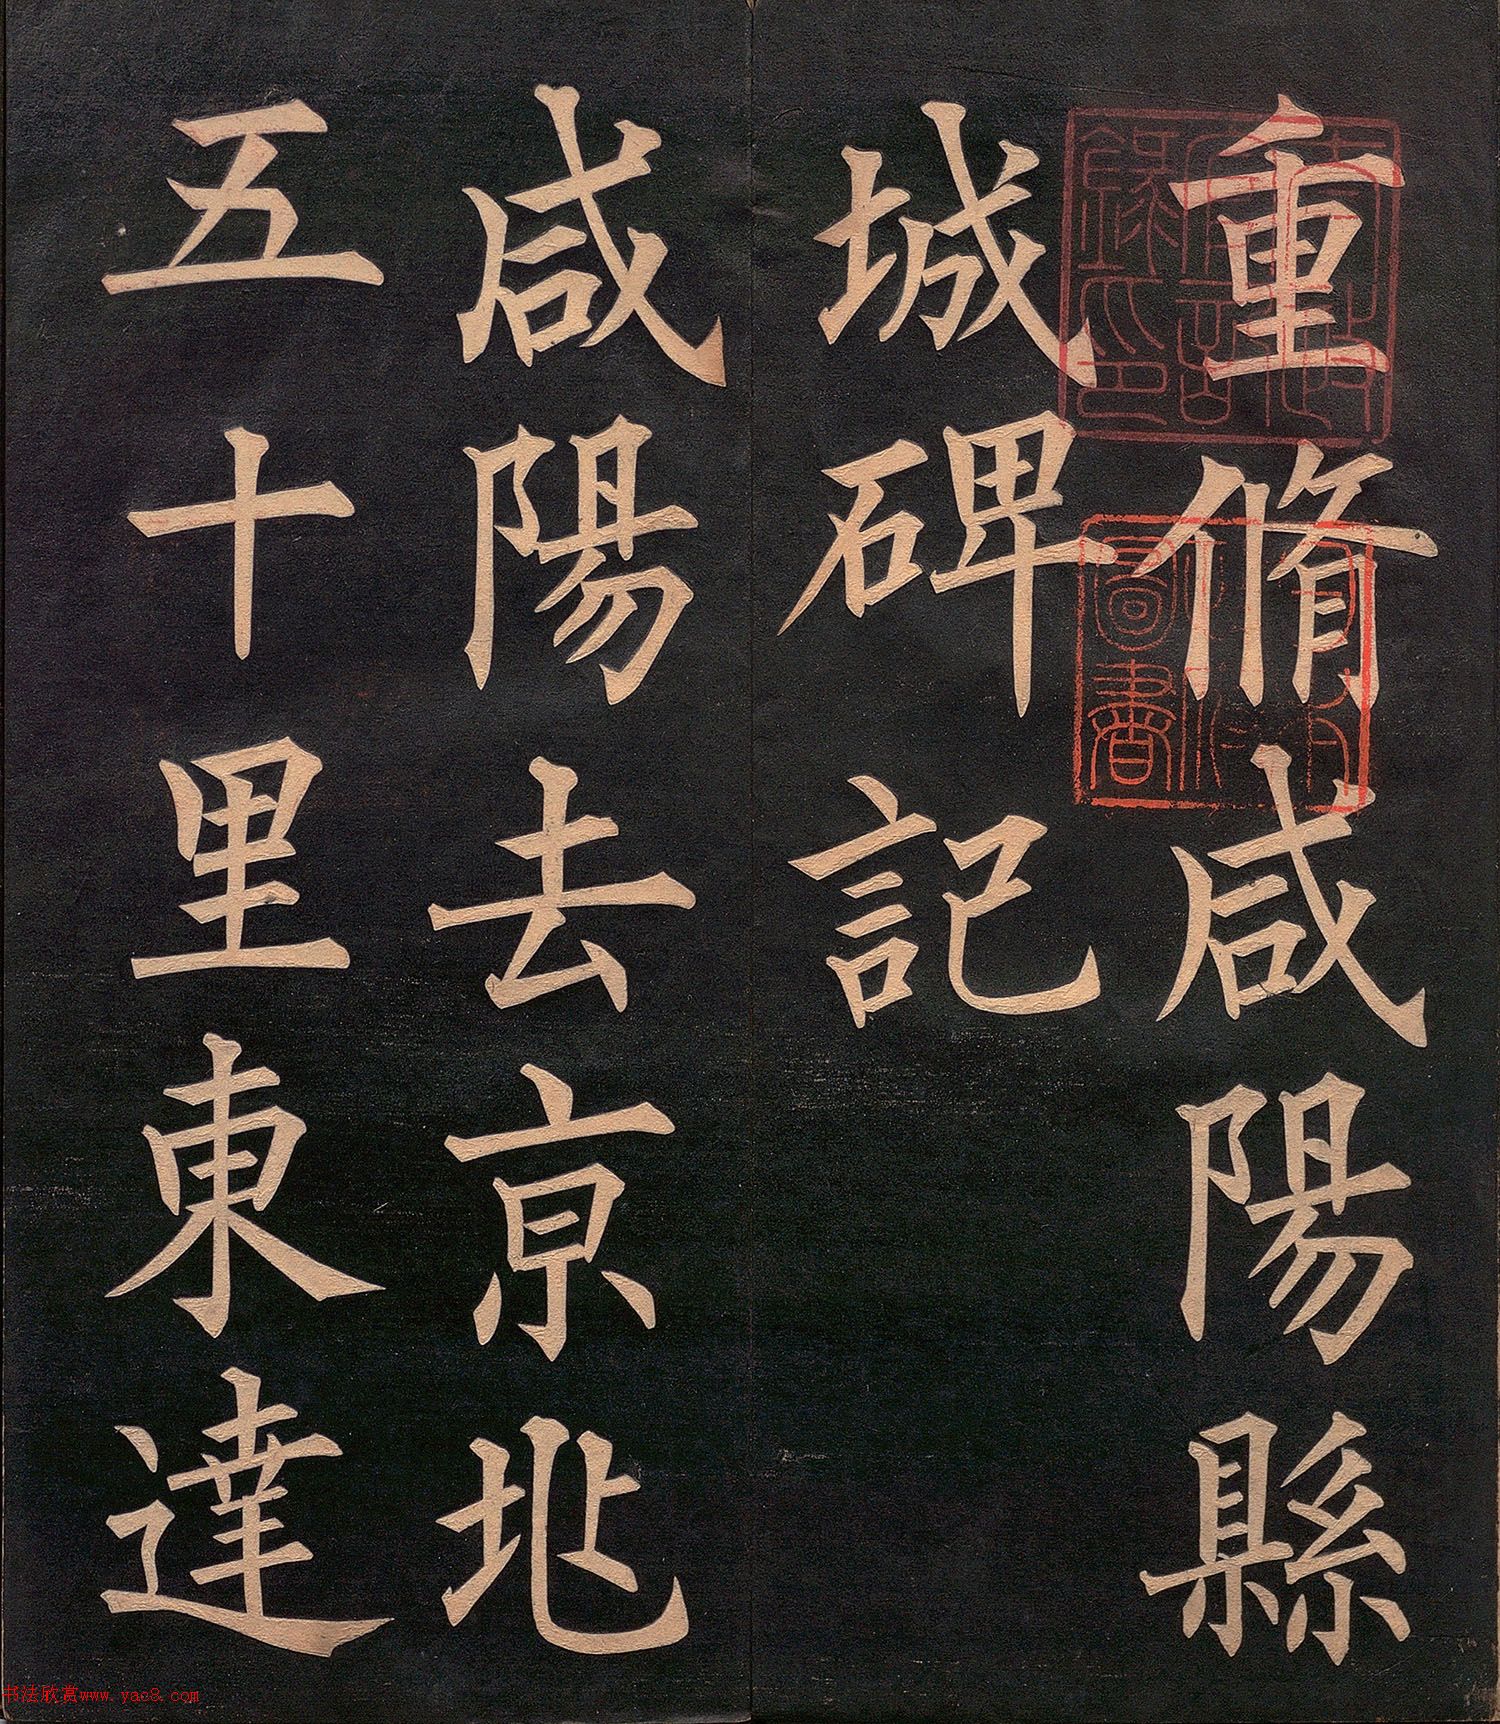 重脩咸陽縣
城碑記
咸陽去京北
五十里東達
圖書
书法欣赏www.yac8.com